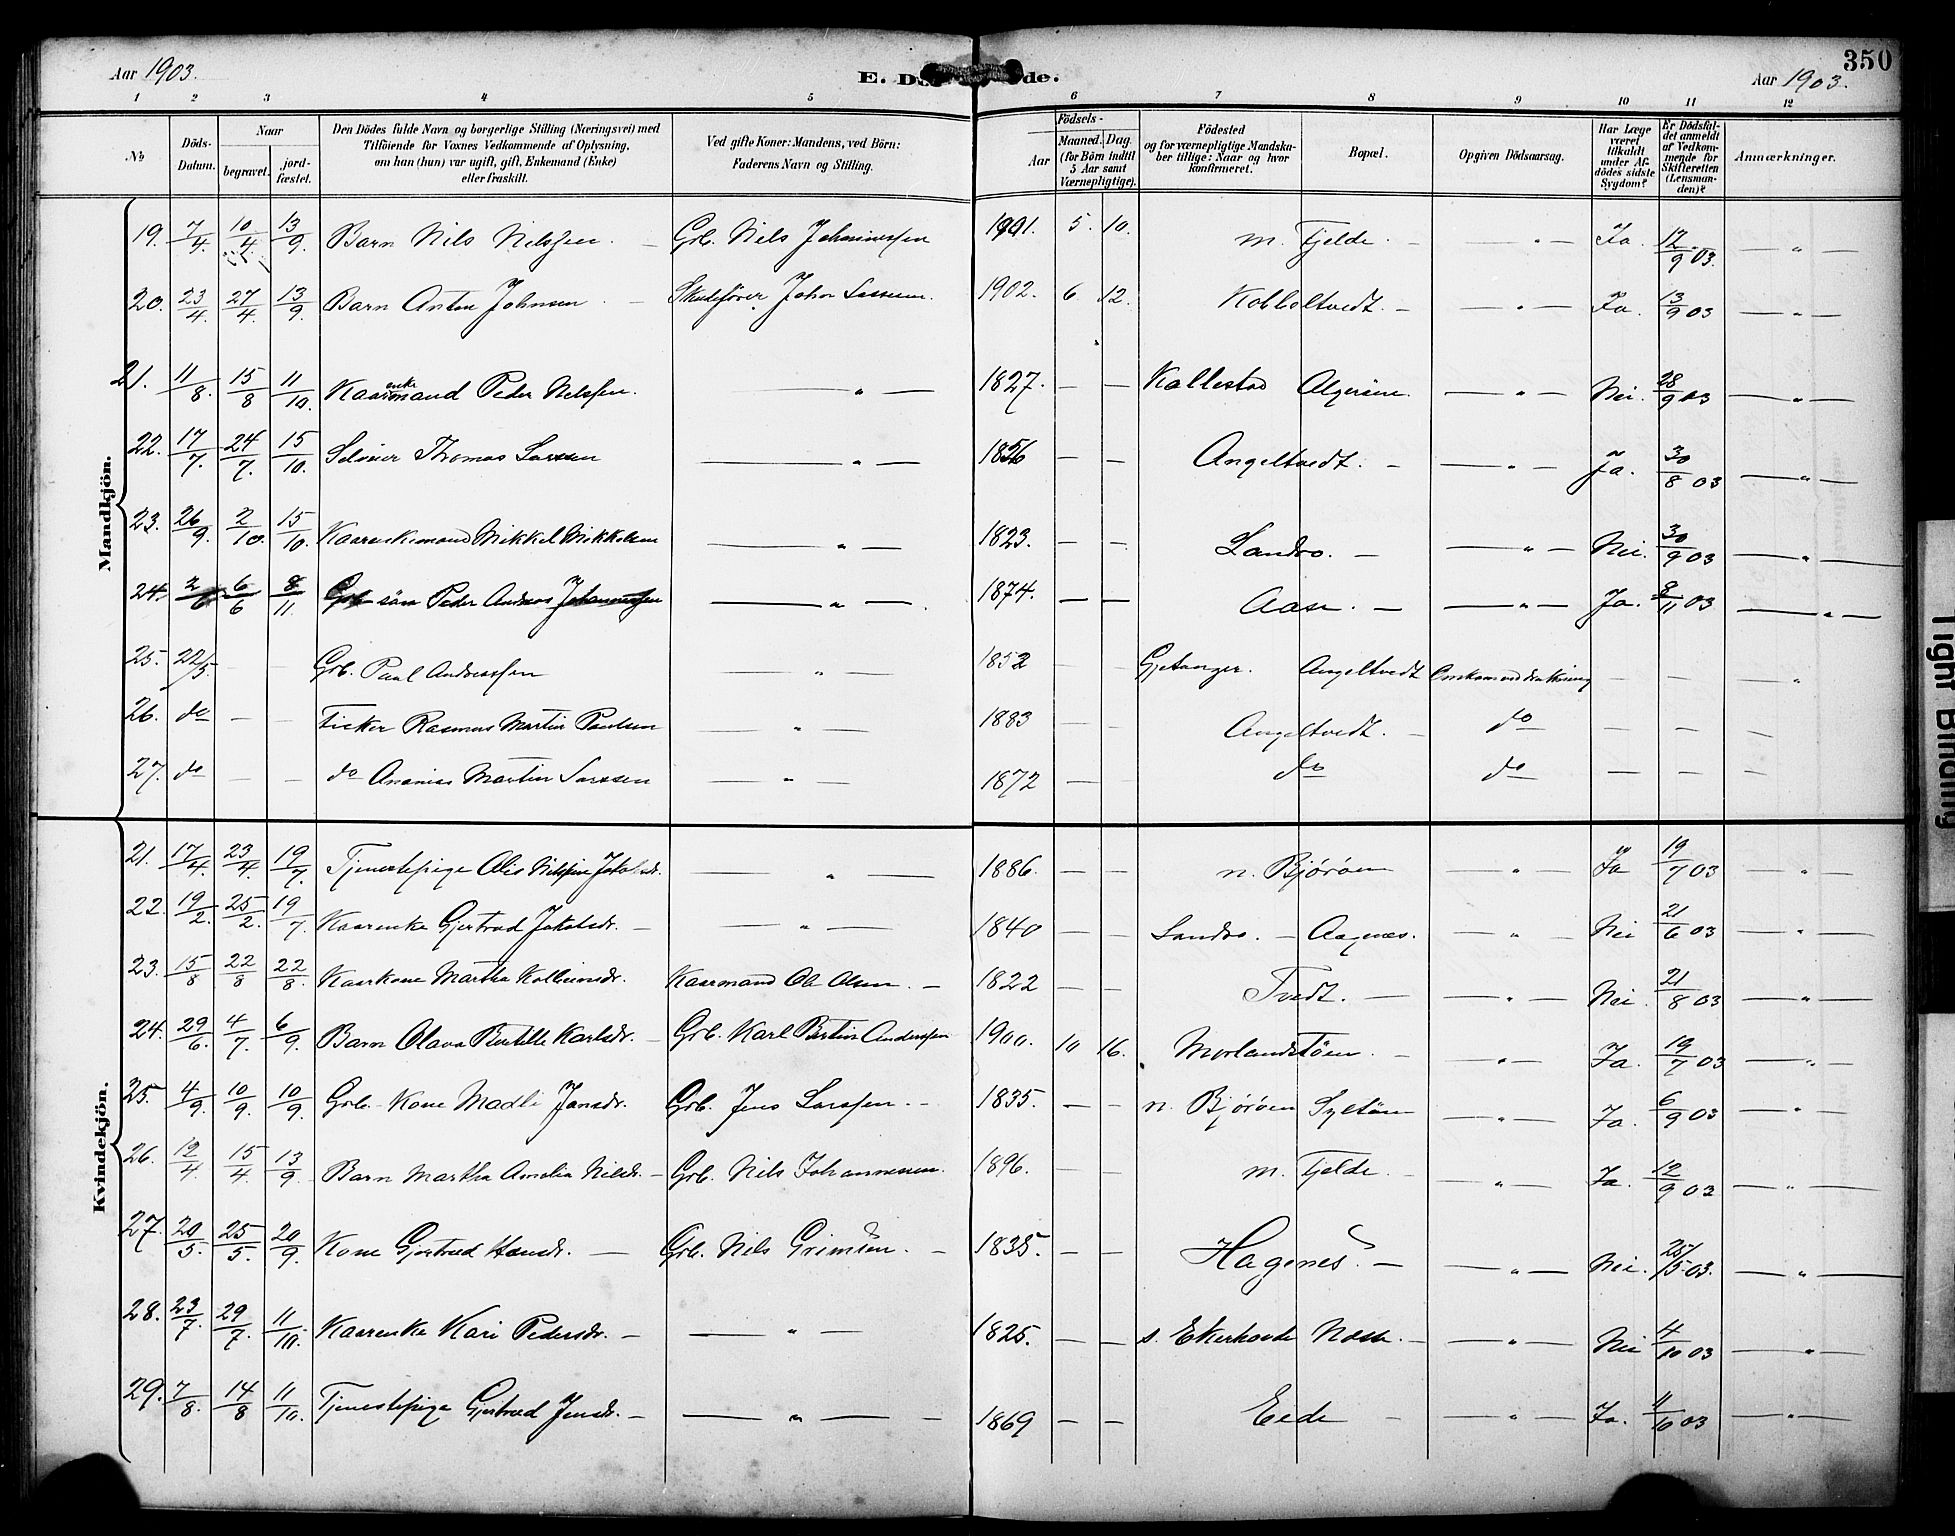 350
Aar 1903. E. D de. Aar 1903.
1 2 3 4 5 6 7 8 9 10 11 12
No Döds-Datum. Naar begravet. jord-fæstet. Den Dödes fulde Navn og borgerlige Stilling (Næringsvei) med Tilföiende for Voxnes Vedkommende af Oplysning, om han (hun) var ugift, gift, Enkemand (Enke) eller fraskilt. Ved gifte Koner: Mandens, ved Börn: Faderens Navn og Stilling. Födsels- Aar Maaned. Dag. (for Börn indtil 5 Aar samt Værnepligtige). Födested og for værnepligtige Mandska-ber tillige: Naar og hvor konfirmeret. Bopæl. Opgiven Dödsaarsag. Har Læge været tilkaldt under Af-dödes sidste Sygdom? Er Dödsfal-det anmeldt af Vedkom-mende for Skifteretten (Lensman-den)? Anmærkninger.
Mandkjön.
19. 7/4 10/4 13/9 Barn Nils Nilssen. — Grb. Nils Johannessen 1901. 5. 10. m. Fjelde. — — " — Ja. 12/9 03. — " —
20. 23/4 27/4 13/9 Barn Anton Johnsen — Skudefører John Lassen. 1902. 6 12. Kobbeltvedt. — — " — Ja. 13/9 03 — " —
21. 11/8. 15/8 11/10. Kaarenkemand Peder Nilssen. — " — 1827. — — Kallestad Algerøen. — " — Nei. 28/9 03 — " —
22. 17/7. 24/7. 15/10. Selvier Thomas Larssen — " — 1856 — — Angeltvedt. — — " — Ja. 30/8 03 — " —
23. 26/9. 2/10. 15/10. Kaarenkemand Mikkel Mikkelsen — " — 1823. — — Landro. — — " — Nei. 30/9 03 — " —
24. 2/6 6/6 8/11. Grb. søn Peder Andreas Johannessen — " — 1874. — — Aase. — — " — Ja. 8/11 03 — " —
25. 22/5. — — Grb. Paul Andreassen — " — 1852 — — Gjetanger. Angeltvedt Omkom ved drukning — — "
26. do — — Fisker Rasmus Martin Paulsen — " — 1883 — — Angeltvedt. — do — — —
27. do — — do Ananias Martin Larssen — " — 1872 — — do do — — —
Kvindekjön.
21. 17/4. 23/4. 19/7. Tjenestepige Olis Nilsine Jakobsdr. — " — 1886. — — n. Bjørøen — " — Ja 19/7 03 — " —
22. 19/2. 25/2. 19/7. Kaarenke Gjertrud Jakobsdr. — — " — 1840 — — Landro. — Aagnes. — " — Nei 21/6 03 — " —
23. 15/8 22/8 22/8. Kaarkone Martha Kolbeinsdr. Kaarmand Ole Olsen. — 1822 — — Tvedt. — — " — Nei. 21/8 03 — " —
24. 29/6. 4/7. 6/9. Barn Olava Bertille Karlsdr. — Grb. Karl Bertin Anderssen 1900. 10 16. Morlandstøen. — — " — Ja. 19/7 03 — " —
25. 4/9. 10/9. 10/9. Grb. Kone Madli Jansdr. Grb. Jens Larssen. — 1835. — — n. Bjørøen Syltøen — " — Ja. 6/9 03 — " —
26. 12/4 15/4. 13/9 Barn Martha Amalia Nilsdr. — Grb. Nils Johannessen. 1896. — — m. Fjelde. — — " — Ja. 12/9 03 — " —
27. 20/5. 25/5. 20/9. Kone Gjertrud Hansdr. — Grb. Nils Grimsen. — 1835. — — Hagenes. — — " — Nei. 25/5 03. — " —
28. 23/7. 29/7. 11/10. Kaarenke Kari Pedersdr. — — " — 1825. — — s. Ekerhovde Nesse. — — " — Nei 4/10 03 — " —
29. 7/8. 14/8 11/10. Tjenestepige Gjertrud Jensdr. — — " — 1869 — — Eede — — " — Ja. 4/10 03 — " —
Tight Binding